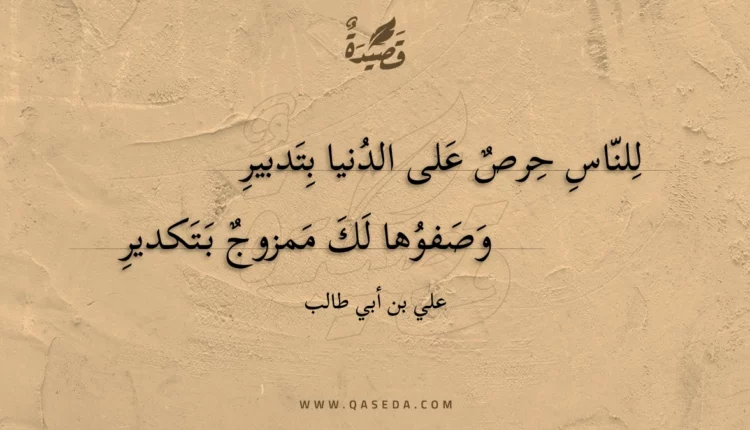 قَصِيْدَةٌ
لِلنّاسِ حِرصٌ عَلى الدُنيا بِتَدبيرِ
وَصَفوُها لَكَ مَمزوجٌ بَتَكديرِ
علي بن أبي طالب
WWW.QASEDA.COM